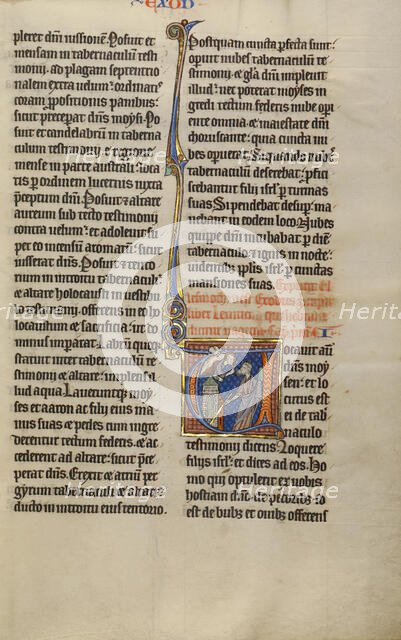 EXOD
pleret dm̄ iussionē. Posuit et
mensam in tabernaculū testi
monij ad plagam septentrio
nalem extra uelum: ordinatis
coram ꝓpositionis panibus:
sicut p̄ceperat dm̄s moysi. Po
suit et candelabrum in taberna
culum testimonij e regione
mense in parte australi: loca
tis ꝑ ordinem lucernis iuxta
p̄ceptum dm̄. Posuit et altare
aureum sub tecto testimonij
contra uelum: et adoleuit su
per eo incensum aromatū: sicut
iusserat dm̄s. Posuit et
tabernaculi
et altare holocausti in uestibu
lo testimonij offerens in eo ho
locaustum et sacrificia: ut do
minus imparat. labrum quoqꝫ
statuit inter tabernaculū testi
monij et altare: implens il
lud aqua. Laueruntqꝫ moy
ses et aaron ac filij eius ma
nus suas et pedes cum ingre
derentur tectum federis: et ac
cederent ad altare: sicut p̄ce
perat dm̄s. Erexit et atrium ꝑ
gyrum tabernaculi et altaris
ducto in introitu eius tentorio.
Postquam cuncta ꝑfecta sunt:
opuit nubes tabernaculum te
stimonij: et glā dm̄i impleuit
illud: nec poterat moyses in
gredi tectum federis nube ope
riente omnia: et maiestate dm̄i
choruscante: quia cuncta nu
bes opuerat. Siquando nubes
tabernaculum deserebat: ꝓfici
scebantur filij isrl̄ ꝑ turmas
suas. Si pendebat desuper: ma
nebant in eodem loco. Nubes
quippe dm̄i incubabat ꝑ diem
tabernaculo: et ignis in nocte:
uidentibus ꝑplis isrl̄ ꝑ cunctas
mansiones suas. Explicit el
lesmoth id est Exodus. Incipit
liber Leuitic
I
ocauit autē
dm̄s moy
sen: et lo
cutus est
ei de tab
naculo
testimonij dicens. Loquere
filijs isrl̄: et dices ad eos. Ho
mo qui optulerit ex uobis
hostiam dm̄o de pecorib;: id
est de bub; et ouib; offerens
Heritage
Heritage
Heritage
Heritage
Heritage
Heritage
Images
Images